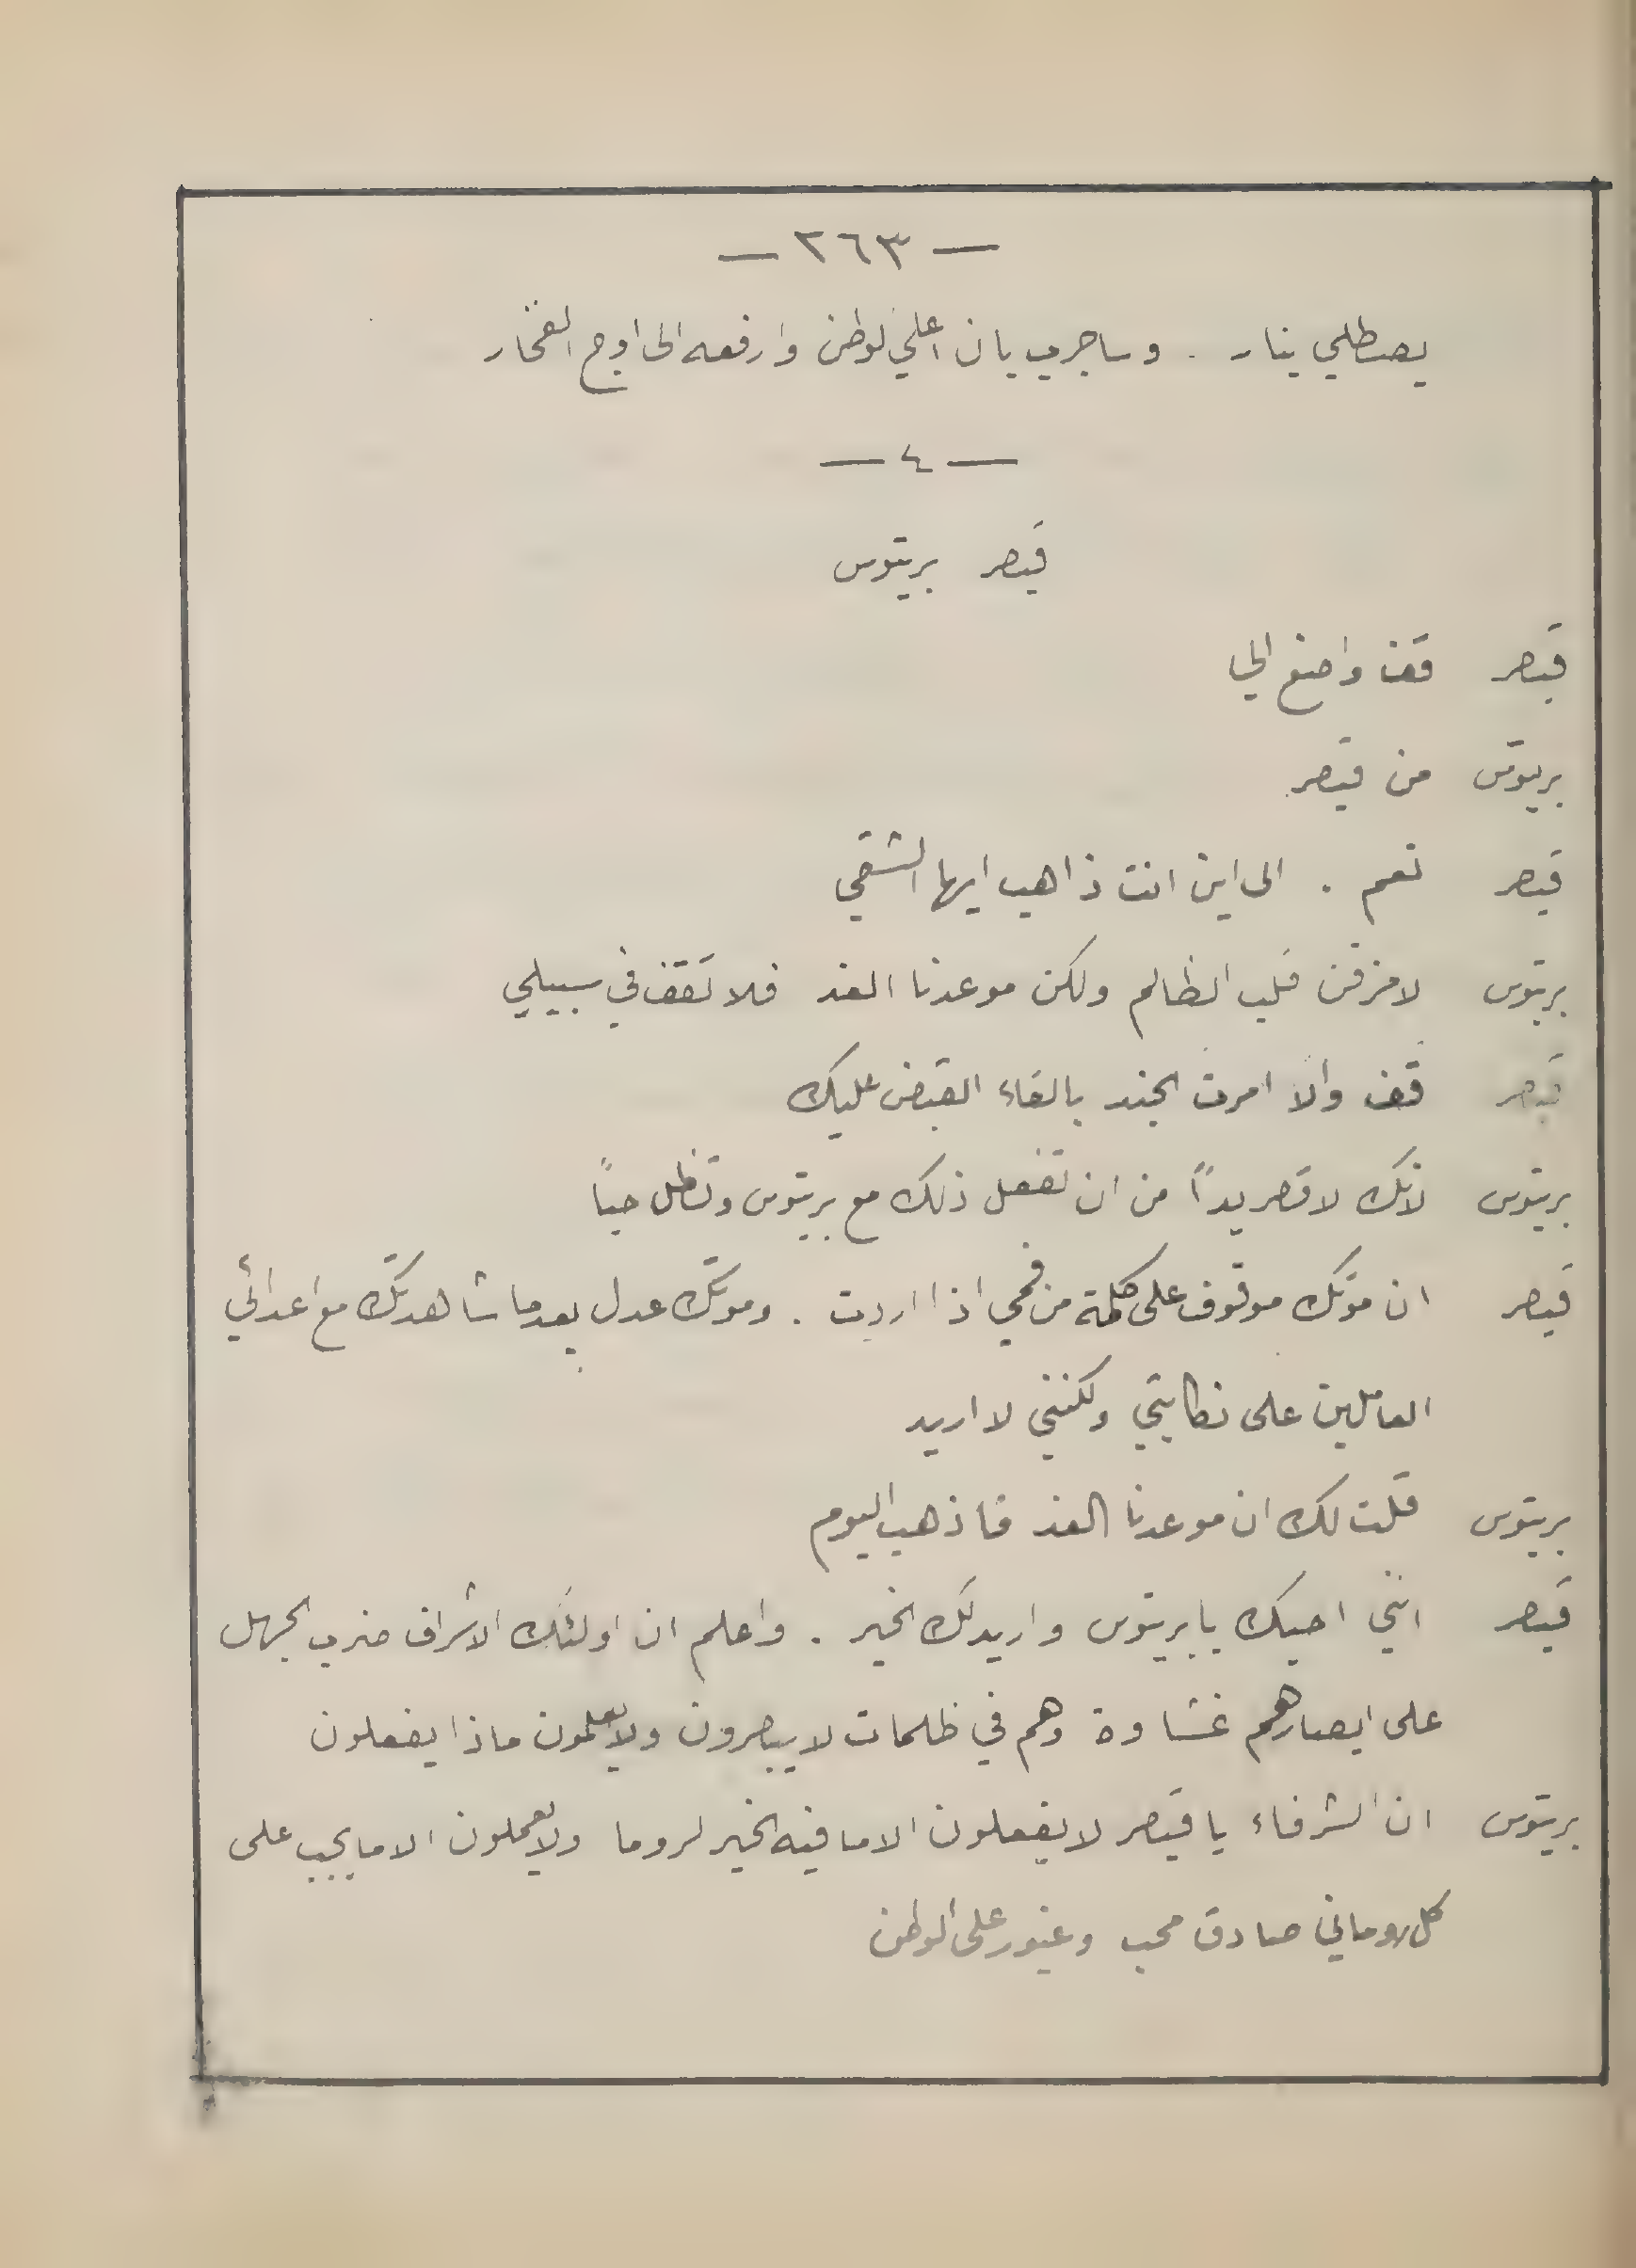 — ٢٦٣ —
يصطلي بنار . وساجرب بان اعلي الوطن وارفعه الى اوج الفخار
— ٤ —
قيصر بريتوس
قيصر قف واصغ الي
بريتوس من قيصر
قيصر نعم . الى اين انت ذاهب ايها الشقي
بريتوس لامزقن قلب الظالم ولكن موعدنا الغد فلا تقف في سبيلي
قيصر قف والا امرت الجند بالقاء القبض عليك
بريتوس لانك لا قصر يداً من ان تفعل ذلك مع بريتوس وتظل حياً
قيصر ان موتك موقوف على كلمة من فمي اذا اردت . وموتك عدل بعدما شاهدتك مع اعدائي
العاملين على نكايتي ولكنني لا اريد
بريتوس قلت لك ان موعدنا الغد فاذهب اليوم
قيصر انني احبك يا بريتوس واريد لك الخير . واعلم ان اولئك الاشراف ضرب الجهل
على ابصارهم غشاوة وهم في ظلمات لا يبصرون ولا يعلمون ماذا يفعلون
بريتوس ان الشرفاء يا قيصر لا يفعلون الا ما فيه الخير لروما ولا يعملون الا ما يجب على
كل روماني صادق محب وغيور على الوطن